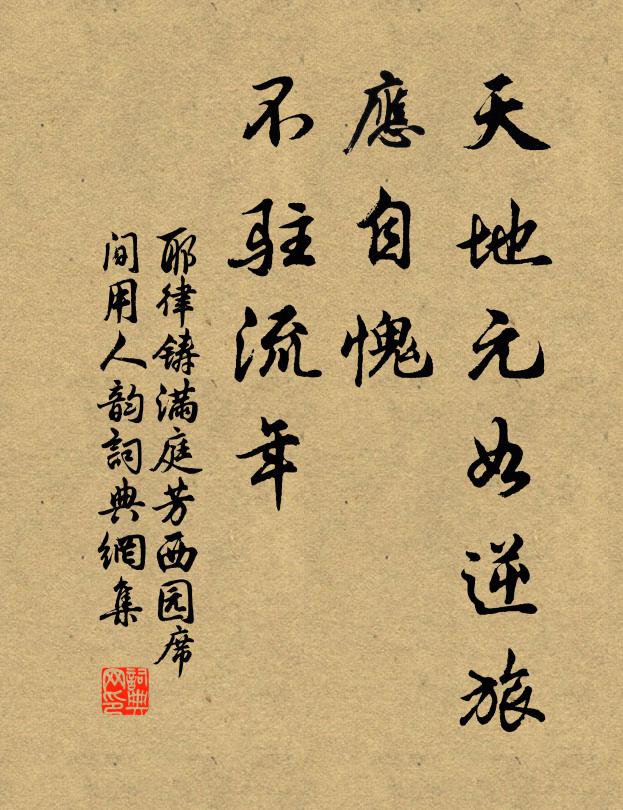 天地元如逆旅
應自愧
不駐流年
耶律鑄滿庭芳西园席
间用人韵詞典網集
詞典网印